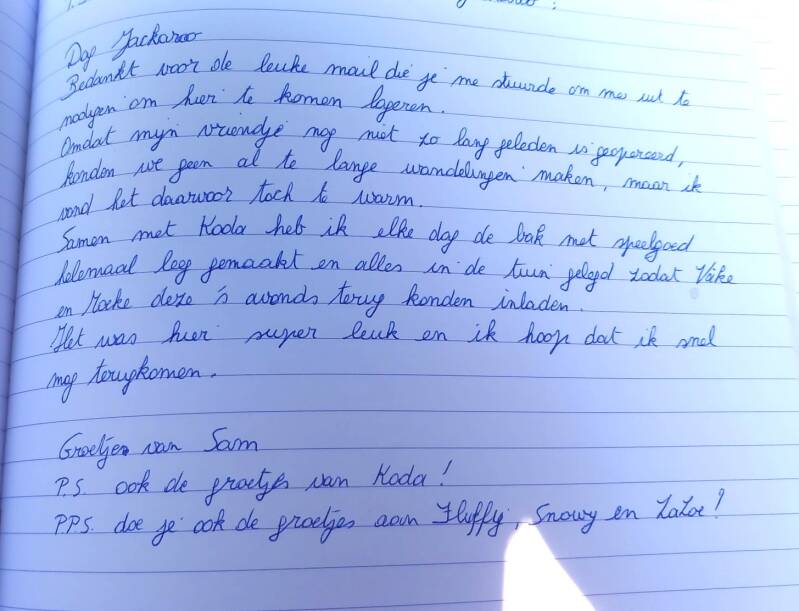 Dag Jackaroo
Bedankt voor de leuke mail die je me stuurde om me uit te
nodigen om hier te komen logeren.
Omdat mijn vriendje nog niet zo lang geleden is geopereerd,
konden we geen al te lange wandelingen maken, maar ik
vond het daarvoor toch te warm.
Samen met Koda heb ik elke dag de bak met speelgoed
helemaal leeg gemaakt en alles in de tuin gelegd zodat Vake
en Moeke deze 's avonds terug konden inladen.
Het was hier super leuk en ik hoop dat ik snel
mag terugkomen.
Groetjes van Sam
P.S. ook de groetjes van Koda!
PPS. doe je ook de groetjes aan Fluffy, Snowy en ZaZoe!